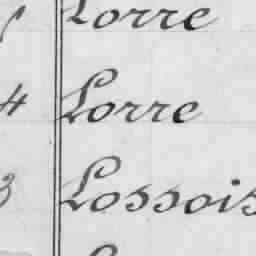 Lorre
4 Lorre
3 Lossois